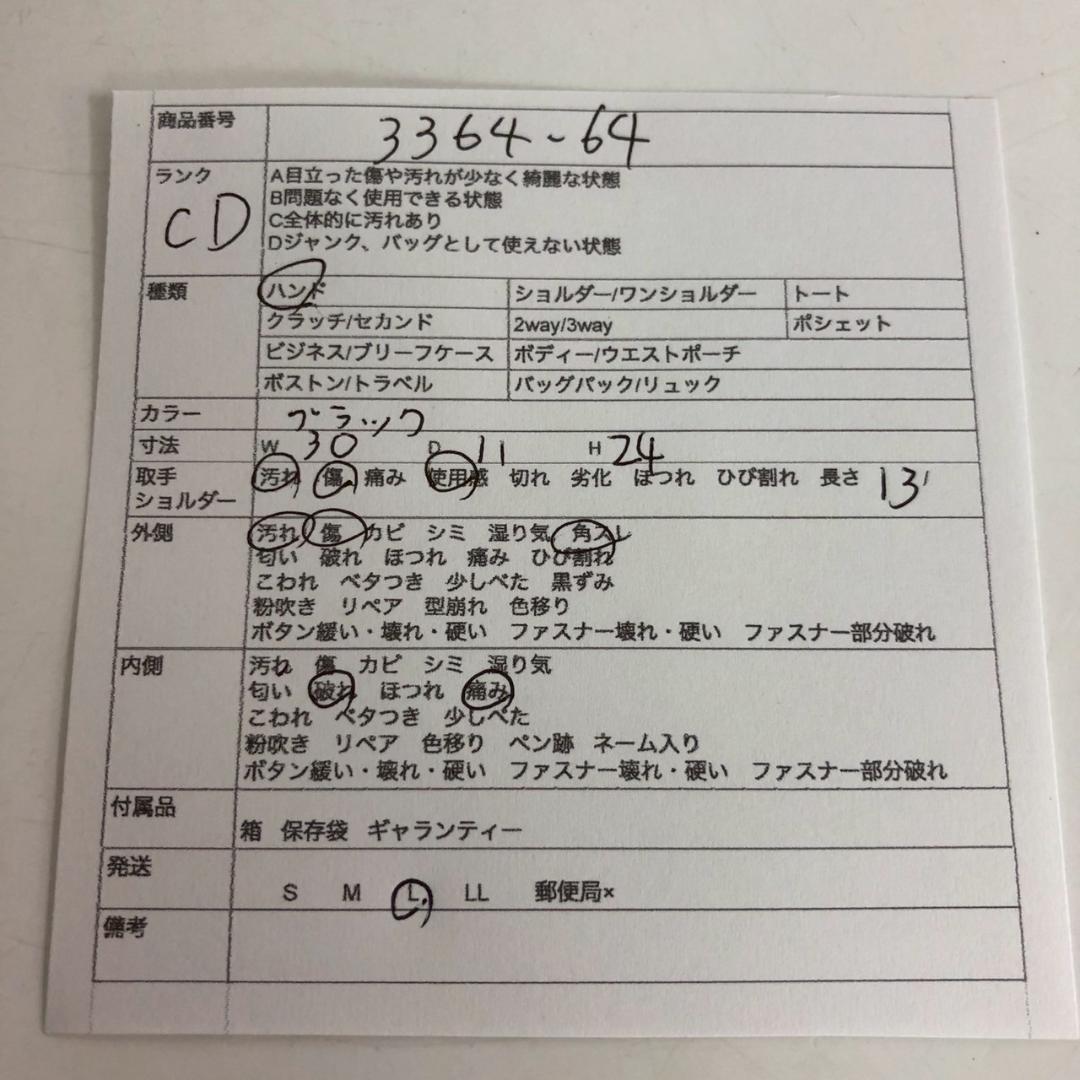 商品番号 3364-64
ランク CD
A目立った傷や汚れが少なく綺麗な状態
B問題なく使用できる状態
C全体的に汚れあり
Dジャンク、バッグとして使えない状態
種類 ハンド ショルダー/ワンショルダー トート
クラッチ/セカンド 2way/3way ポシェット
ビジネス/ブリーフケース ボディー/ウエストポーチ
ボストン/トラベル バッグパック/リュック
カラー ブラック
寸法 W 30 D 11 H 24
取手 汚れ 傷 痛み 使用感 切れ 劣化 ほつれ ひび割れ 長さ 13
ショルダー
外側 汚れ 傷 カビ シミ 湿り気 角スレ
匂い 破れ ほつれ 痛み ひび割れ
こわれ ベタつき 少しべた 黒ずみ
粉吹き リペア 型崩れ 色移り
ボタン緩い・壊れ・硬い ファスナー壊れ・硬い ファスナー部分破れ
内側 汚れ 傷 カビ シミ 湿り気
匂い 破れ ほつれ 痛み
こわれ ベタつき 少しべた
粉吹き リペア 色移り ペン跡 ネーム入り
ボタン緩い・壊れ・硬い ファスナー壊れ・硬い ファスナー部分破れ
付属品
箱 保存袋 ギャランティー
発送
S M L LL 郵便局×
備考